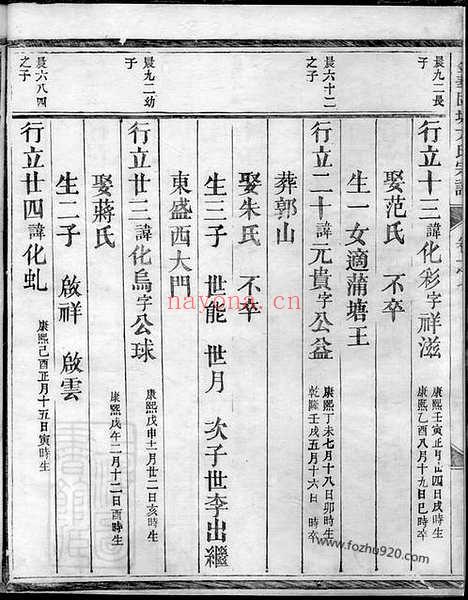 晨九二長
子
行立十三諱化彩字祥滋
康熙壬寅正月廿四日戌時生
康熙乙酉八月十九日巳時卒
娶范氏 不卒
生一女適蒲塘王
晨六十二
之子
行立二十諱元貴字公益
康熙丁未七月十八日卯時生
乾隆壬戌五月十六日 時卒
葬郭山
娶朱氏 不卒
生三子 世能 世月 次子世李出繼
東盛西大門
晨九二幼
子
行立廿三諱化烏字公球
康熙戊申十二月廿二日亥時生
娶蔣氏
康熙戊午二月十二日酉時生
生二子 啟祥 啟雲
晨六八四
之子
行立廿四諱化虬
康熙己酉正月十五日寅時生
nayona.cn
www.fozhu920.com